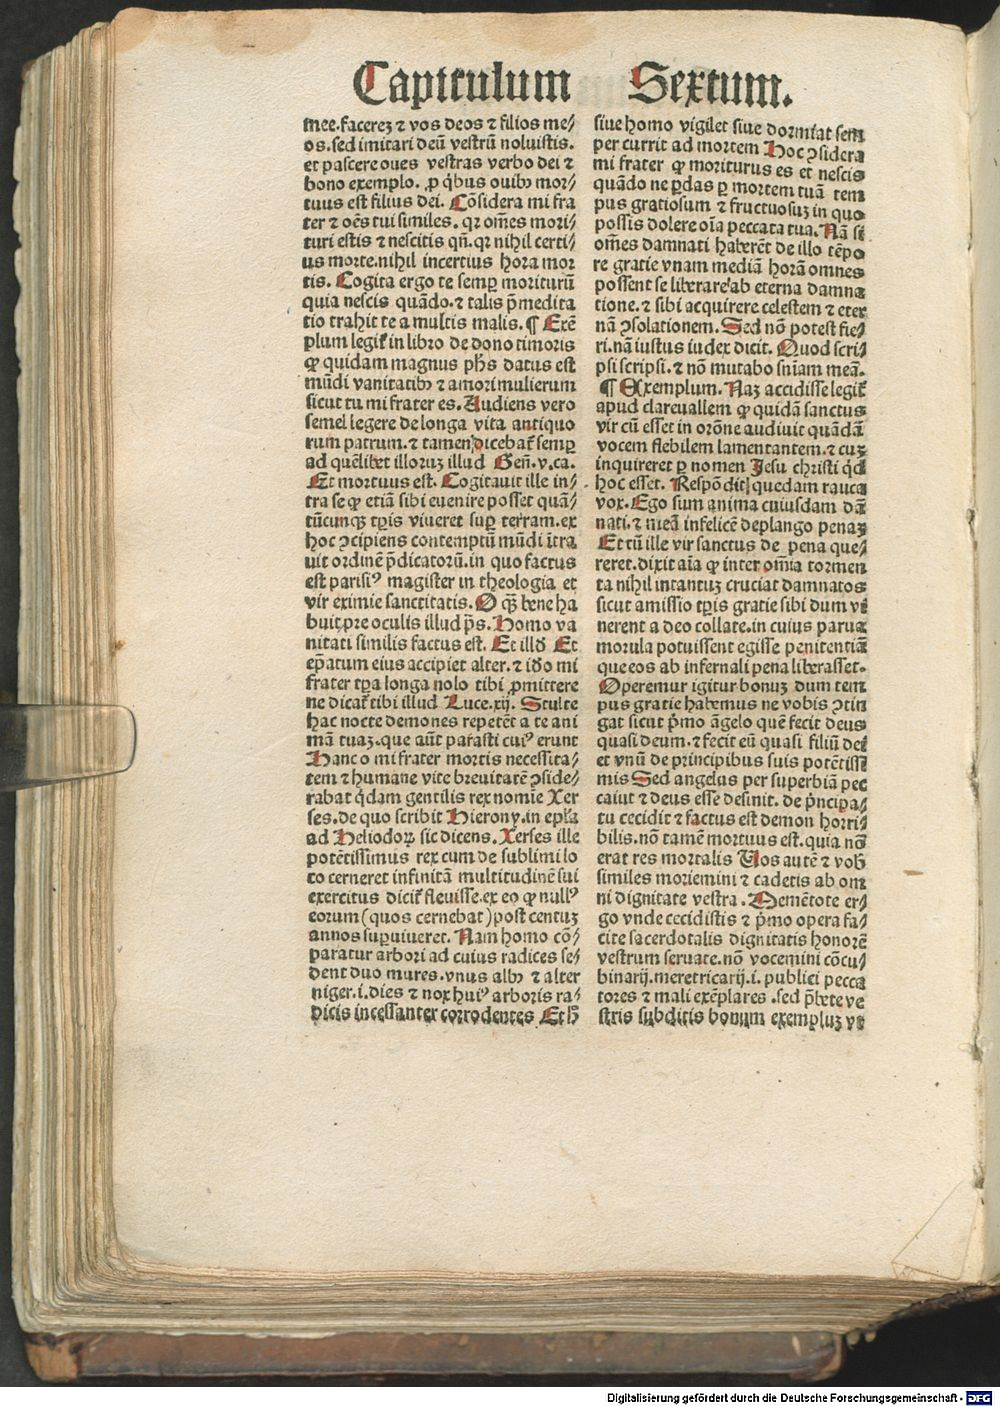 Capitulum Sextum.
mee. facerez ⁊ vos deos ⁊ filios me⸗
os. sed imitari deũ vestrũ noluistis.
et pascere oues vestras verbo dei ⁊
bono exemplo. ꝓ q̇bus ouibꝰ mor⸗
tuus est filius dei. Cõsidera mi fra
ter ⁊ oẽs tui similes. qꝛ om̃es mori⸗
turi estis ⁊ nescitis qñ. qꝛ nihil certi⸗
us morte. nihil incertius hora mor
tis. Cogita ergo te semꝑ moriturũ
quia nescis quãdo. ⁊ talis p̃medita
tio trahit te a multis malis. ¶ Exẽ
plum legiť in libro de dono timoris
ꝙ quidam magnus ph̃s datus est
mũdi vanitatibꝰ ⁊ amori mulierum
sicut tu mi frater es. Audiens vero
semel legere de longa vita antiquo
rum patrum. ⁊ tamen dicebať semꝑ
ad quẽlibet illoruz illud Geñ. v. ca.
Et mortuus est. Cogitauit ille in⸗
tra se ꝙ etiã sibi euenire posset quã⸗
tũcunqꝫ tꝑis viueret suꝑ terram. ex
hoc ↄcipiens contemptũ mũdi ĩtra
uit ordinẽ p̃dicatorũ. in quo factus
est parisiꝰ magister in theologia et
vir eximie sanctitatis. O qꝫ bene ha
buit pre oculis illud p̃s. Homo va
nitati similis factus est. Et illđ Et
ep̃atum eius accipiet alter. ⁊ iđo mi
frater tꝑa longa nolo tibi ꝓmittere
ne dicať tibi illud Luce. xij. Stulte
hac nocte demones repetẽt a te ani
mã tuaz. que aũt parasti cuiꝰ erunt
Hanc o mi frater mortis necessita⸗
tem ⁊ humane vite breuitatẽ ↄside⸗
rabat q̇dam gentilis rex nomĩe Xer
ses. de quo scribit Hierony. in epl̃a
ad Heliodoꝝ sic dicens. Xerses ille
potẽtissimus rex cum de sublimi lo
co cerneret infinitã multitudinẽ sui
exercitus diciť fleuisse. ex eo ꝙ nullꝰ
eorum (quos cernebat) post centuz
annos suꝑuiueret. Nam homo cõ⸗
paratur arbori ad cuius radices se⸗
dent duo mures. vnus albꝰ ⁊ alter
niger. i. dies ⁊ nox huiꝰ arboris ra⸗
dicis incessanter corrodentes Et h̃
siue homo vigilet siue dormiat sem
per currit ad mortem Hoc ↄsidera
mi frater ꝙ moriturus es et nescis
quãdo ne ꝑdas ꝑ mortem tuã tem
pus gratiosum ⁊ fructuosuz in quo
possis dolere oĩa peccata tua. Nã si
om̃es damnati haberẽt de illo tẽpo
re gratie vnam mediã horã omnes
possent se liberare ab eterna damna
tione. ⁊ sibi acquirere celestem ⁊ eter
nã ↄsolationem. Sed nõ potest fie⸗
ri. nã iustus iudex dicit. Quod scri⸗
psi scripsi. ⁊ nõ mutabo sñiam meã.
¶ Exemplum. Naz accidisse legiť
apud clareuallem ꝙ quidã sanctus
vir cũ esset in orõne audiuit quãdã
vocem flebilem lamentantem. ⁊ cuz
inquireret ꝑ nomen Jesu christi q̇d
hoc esset. Respõdit quedam rauca
vox. Ego sum anima cuiusdam dã
nati. ⁊ meã infelicẽ deplango penaz
Et cũ ille vir sanctus de pena que⸗
reret. dixit aĩa ꝙ inter om̃ia tormen
ta nihil intantuz cruciat damnatos
sicut amissio tꝑis gratie sibi dum vi
uerent a deo collate. in cuius parua
morula potuissent egisse penitentiã
que eos ab infernali pena liberasset.
Operemur igitur bonuz dum tem
pus gratie habemus ne vobis ↄtin
gat sicut p̃mo ãgelo quẽ fecit deus
quasi deum. ⁊ fecit eũ quasi filiũ dei
et vnũ de principibus suis potẽtissi
mis Sed angelus per superbiã pec
cauit ⁊ deus esse desinit. de p̃ncipa⸗
tu cecidit ⁊ factus est demon horri⸗
bilis. nõ tamẽ mortuus est. quia nõ
erat res mortalis Uos autẽ ⁊ vob̃
similes moriemini ⁊ cadetis ab om
ni dignitate vestra. Mementote er⸗
go vnde cecidistis ⁊ p̃mo opera fa⸗
cite sacerdotalis dignitatis honorẽ
vestrum seruate. nõ vocemini cõcu⸗
binarij. meretricarij. i. publici pecca
tores ⁊ mali exẽplares. sed p̃bete ve
stris subditis bonum exempluz vt
Digitalisierung gefördert durch die Deutsche Forschungsgemeinschaft - DFG